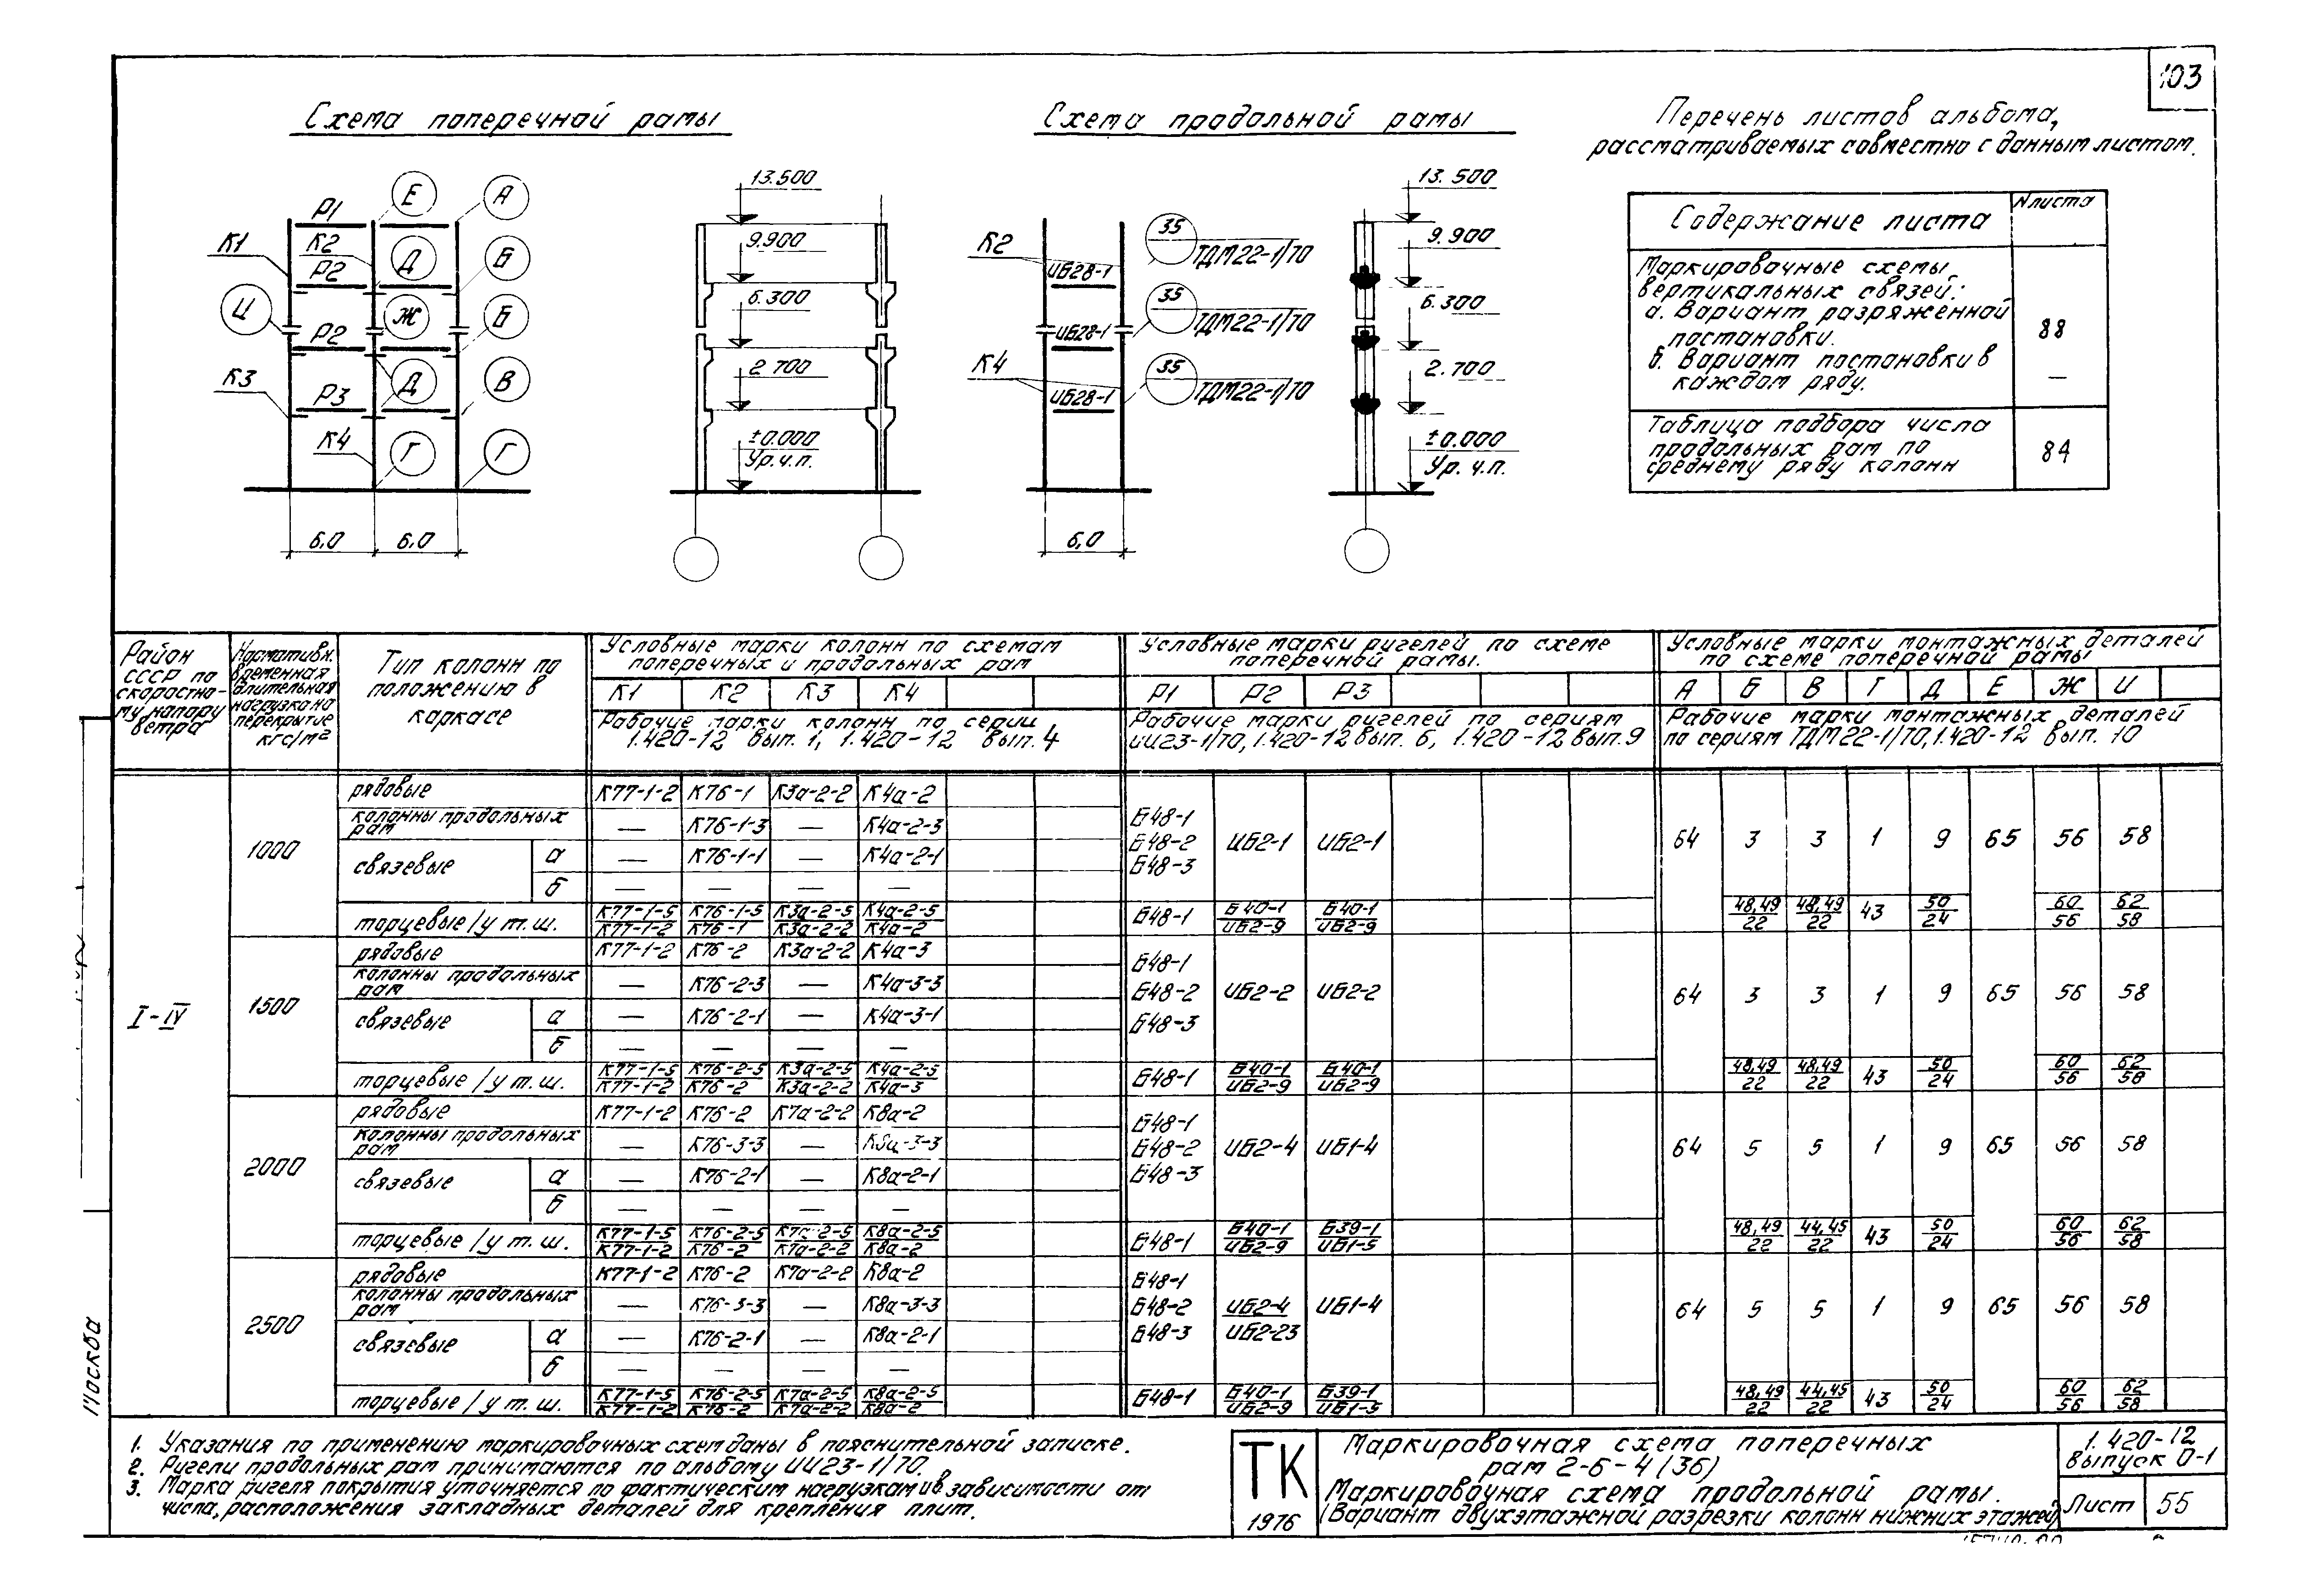 103
Схема поперечной рамы
Схема продольной рамы
Перечень листов альбома,
рассматриваемых совместно с данным листом.
Е А
Р1
К1 К2 Д Б
Р2
И Ж Б
Р2
К3 Д В
Р3
К4 Г Г
6,0 6,0
13.500
9.900
6.300
2.700
±0.000
Ур.ч.п.
К2
ИБ28-1
35
ТДМ22-1/70
ИБ28-1
35
ТДМ22-1/70
К4
ИБ28-1
35
ТДМ22-1/70
6,0
13.500
9.900
6.300
2.700
±0.000
Ур.ч.п.
Содержание листа N листа
Маркировочные схемы
вертикальных связей:
а. Вариант разряженной
постановки. 88
б. Вариант постановки в
каждом ряду. —
Таблица подбора числа
продольных рам по 84
среднему ряду колонн
Район СССР по скоростному напору ветра
Нормативн. временная длительная нагрузка на перекрытие кгс/м²
Тип колонн по положению в каркасе
Условные марки колонн по схемам поперечных и продольных рам
К1 К2 К3 К4
Рабочие марки колонн по серии 1.420-12 вып. 1, 1.420-12 вып. 4
Условные марки ригелей по схеме поперечной рамы.
Р1 Р2 Р3
Рабочие марки ригелей по сериям ИИ23-1/70, 1.420-12 вып. 6, 1.420-12 вып. 9
Условные марки монтажных деталей по схеме поперечной рамы
А Б В Г Д Е Ж И
Рабочие марки монтажных деталей по сериям ТДМ22-1/70, 1.420-12 вып. 10
I-IV
1000
рядовые К77-1-2 К76-1 К3а-2-2 К4а-2
колонны продольных рам — К76-1-3 — К4а-2-3
связевые а — К76-1-1 — К4а-2-1
б — — — —
Б48-1 Б48-2 Б48-3 ИБ2-1 ИБ2-1 64 3 3 1 9 65 56 58
торцевые/у т.ш. К77-1-5/К77-1-2 К76-1-5/К76-1 К3а-2-5/К3а-2-2 К4а-2-5/К4а-2 Б48-1 Б40-1/ИБ2-9 Б40-1/ИБ2-9 48,49/22 48,49/22 43 50/24 60/56 62/58
1500
рядовые К77-1-2 К76-2 К3а-2-2 К4а-3
колонны продольных рам — К76-2-3 — К4а-3-3
связевые а — К76-2-1 — К4а-3-1
б — — — —
Б48-1 Б48-2 Б48-3 ИБ2-2 ИБ2-2 64 3 3 1 9 65 56 58
торцевые/у т.ш. К77-1-5/К77-1-2 К76-2-5/К76-2 К3а-2-5/К3а-2-2 К4а-2-5/К4а-3 Б48-1 Б40-1/ИБ2-9 Б40-1/ИБ2-9 48,49/22 48,49/22 43 50/24 60/56 62/58
2000
рядовые К77-1-2 К76-2 К7а-2-2 К8а-2
колонны продольных рам — К76-3-3 — К8а-3-3
связевые а — К76-2-1 — К8а-2-1
б — — — —
Б48-1 Б48-2 Б48-3 ИБ2-4 ИБ1-4 64 5 5 1 9 65 56 58
торцевые/у т.ш. К77-1-5/К77-1-2 К76-2-5/К76-2 К7а-2-5/К7а-2-2 К8а-2-5/К8а-2 Б48-1 Б40-1/ИБ2-9 Б39-1/ИБ1-5 48,49/22 44,45/22 43 50/24 60/56 62/58
2500
рядовые К77-1-2 К76-2 К7а-2-2 К8а-2
колонны продольных рам — К76-3-3 — К8а-3-3
связевые а — К76-2-1 — К8а-2-1
б — — — —
Б48-1 Б48-2 Б48-3 ИБ2-4/ИБ2-23 ИБ1-4 64 5 5 1 9 65 56 58
торцевые/у т.ш. К77-1-5/К77-1-2 К76-2-5/К76-2 К7а-2-5/К7а-2-2 К8а-2-5/К8а-2 Б48-1 Б40-1/ИБ2-9 Б39-1/ИБ1-5 48,49/22 44,45/22 43 50/24 60/56 62/58
Москва
1. Указания по применению маркировочных схем даны в пояснительной записке.
2. Ригели продольных рам принимаются по альбому ИИ23-1/70.
3. Марка ригеля покрытия уточняется по фактическим нагрузкам и в зависимости от
числа, расположения закладных деталей для крепления плит.
ТК
1976
Маркировочная схема поперечных
рам 2-6-4 (36)
Маркировочная схема продольной рамы.
(Вариант двухэтажной разрезки колонн нижних этажей)
1.420-12
Выпуск 0-1
Лист 55